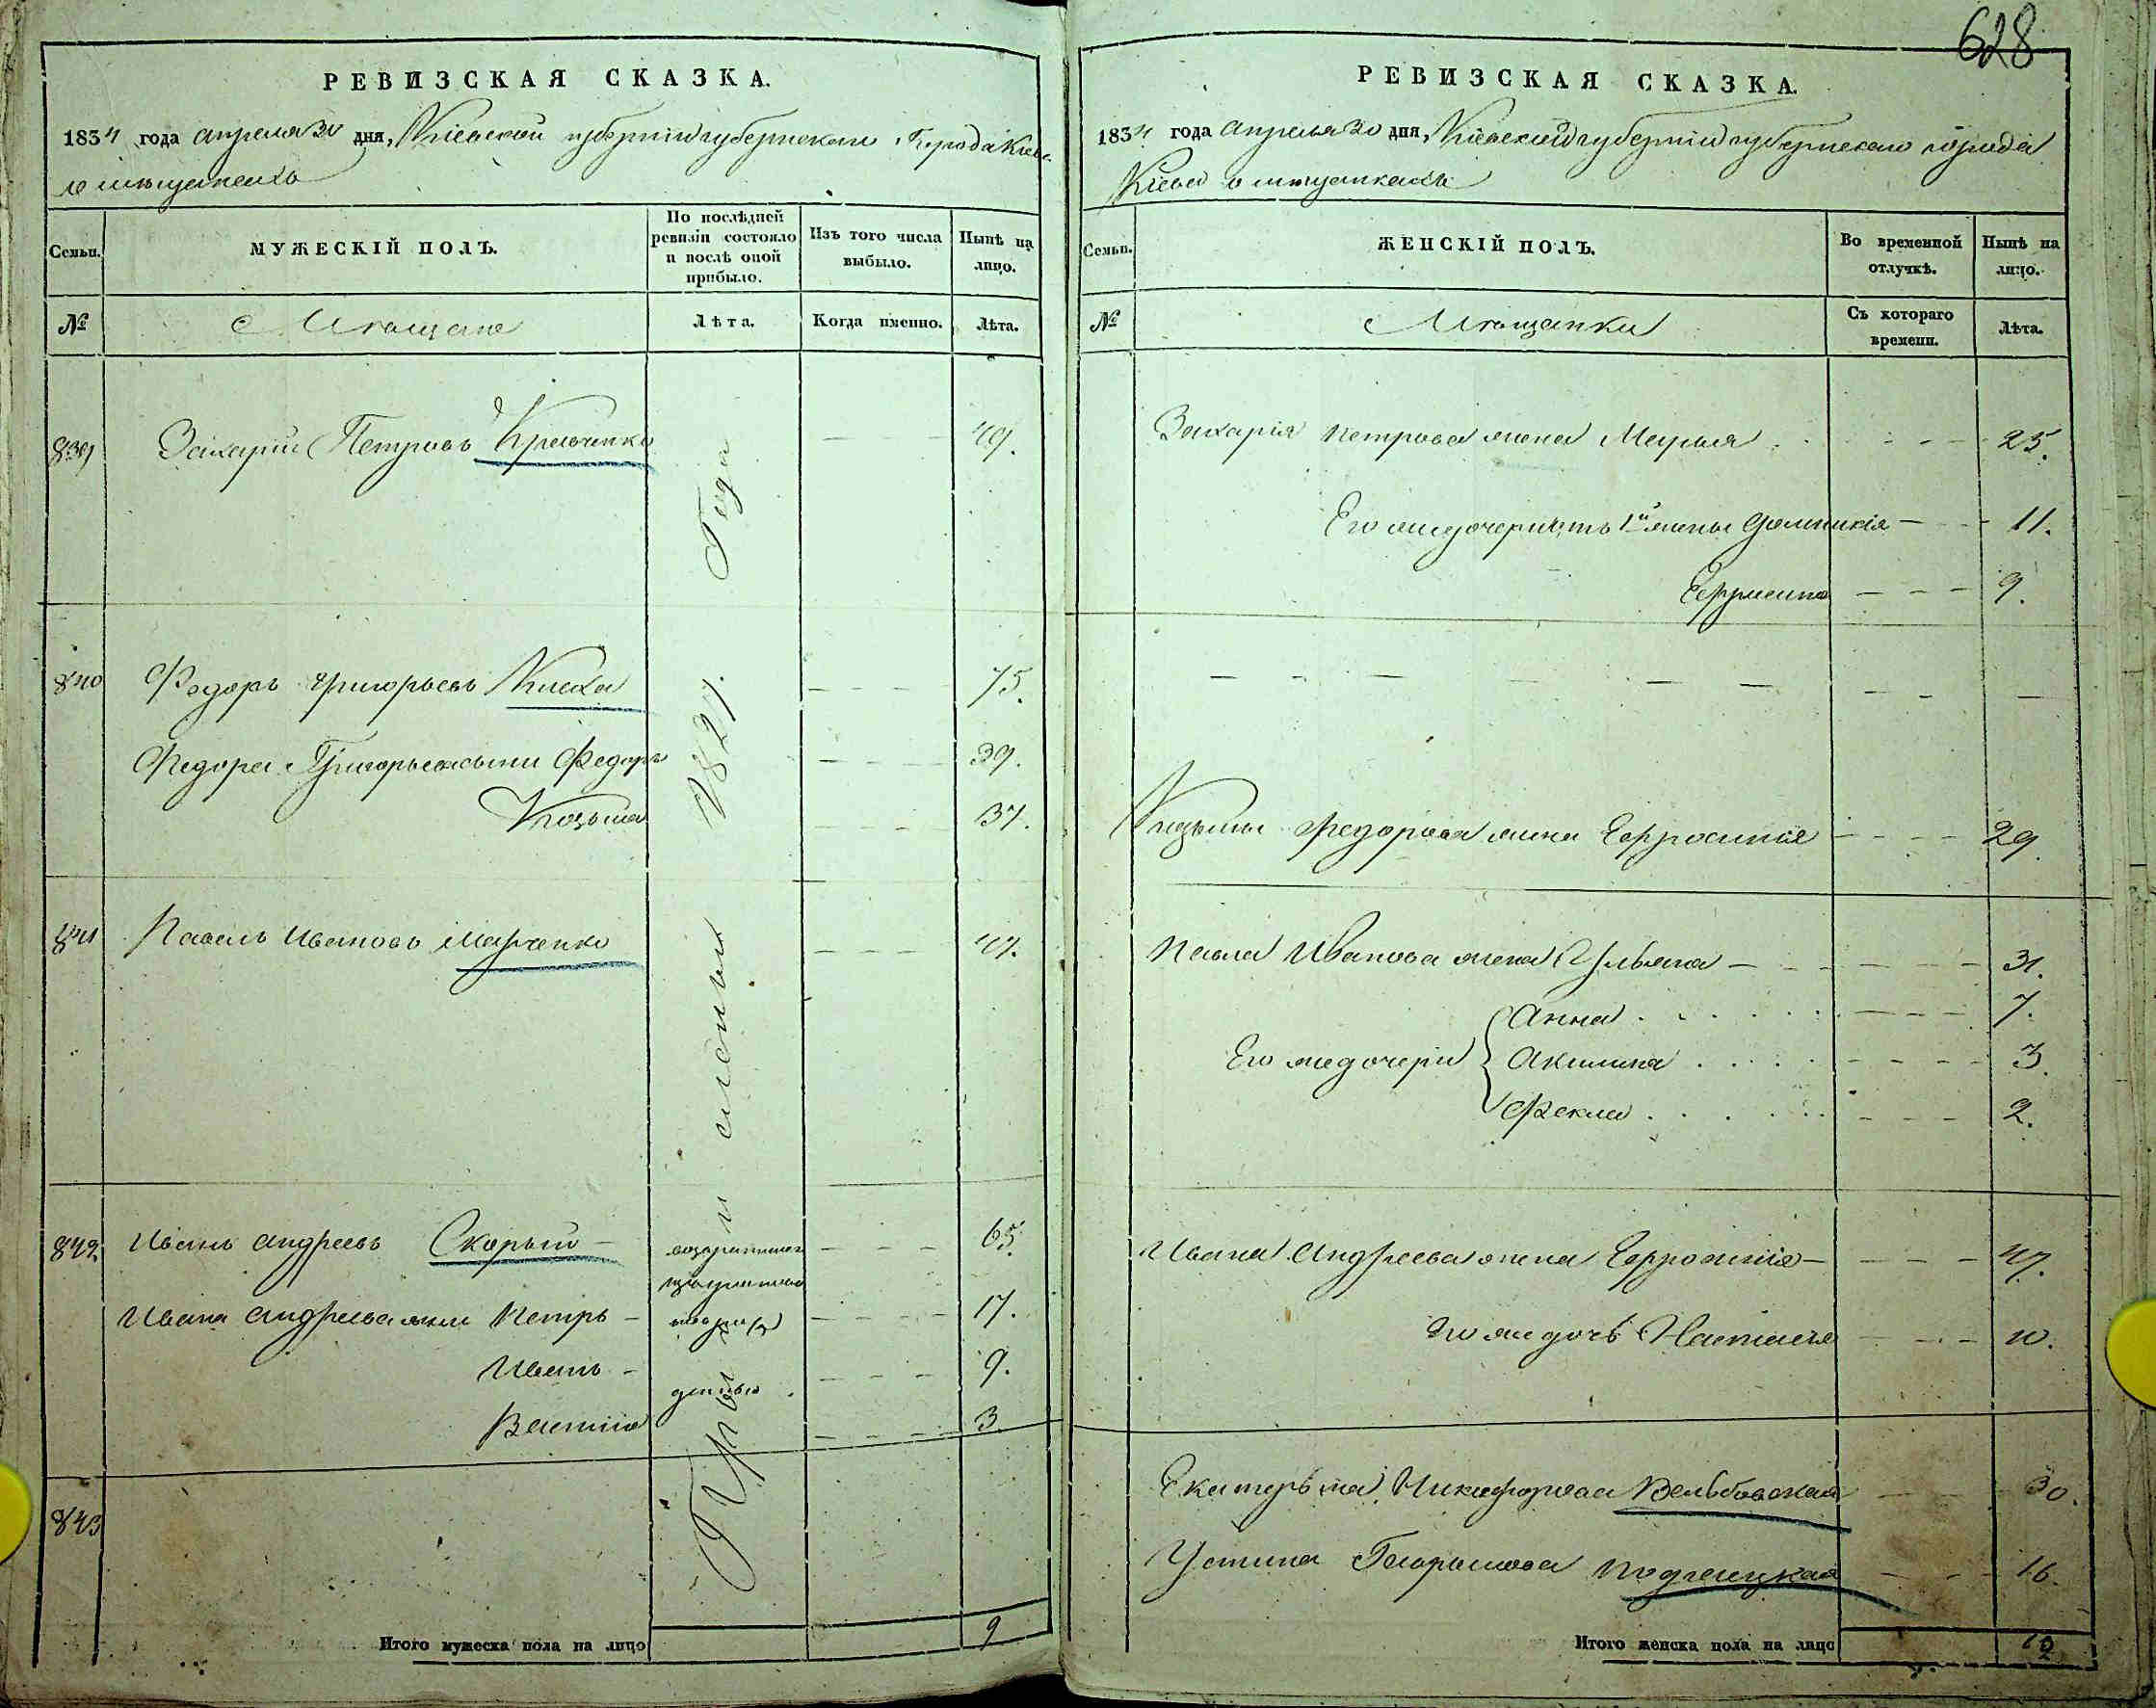 РЕВИЗСКАЯ СКАЗКА.
1834 года апреля 30 дня, Кіевской губерніи губернскаго Города Кіева
о мещанехъ
Семьи. МУЖЕСКІЙ ПОЛЪ. По послѣдней ревизіи состояло и послѣ оной прибыло. Изъ того числа выбыло. Нынѣ на лицо.
№ Мещане Лѣта. Когда именно. Лѣта.
839 Захарій Петровъ 49.
840 Федоръ Григорьевъ 75.
Федора Григорьева сыни Федоръ 39.
Козьма 37.
841 Павелъ Ивановъ Марченко 47.
842 Иванъ Андреевъ Скорый 65.
Ивана Андреева Петръ 17.
Иванъ 9.
3
843
1827. Года
Итого мужеска пола на лицо 9
628
РЕВИЗСКАЯ СКАЗКА.
1834 года апреля 30 дня, Кіевской губерніи губернскаго города
Кіева о мещанкахъ
Семьи. ЖЕНСКІЙ ПОЛЪ. Во временной отлучкѣ. Нынѣ на лицо.
№ Мещанки Съ котораго времени. Лѣта.
Захарія Петрова жена Марья 25.
Его же дочери отъ 1й жены Домникія 11.
9.
Козьмы Федорова жена Ефросинія 29.
Павла Иванова жена Ульяна 31.
Анна 7.
Его же дочери Акилина 3.
Фекла 2.
Ивана Андреева жена Ефросинія 47.
Его же дочь Наталія 10.
Екатерина Никифорова 30.
Устина 16.
Итого женска пола на лицо 12